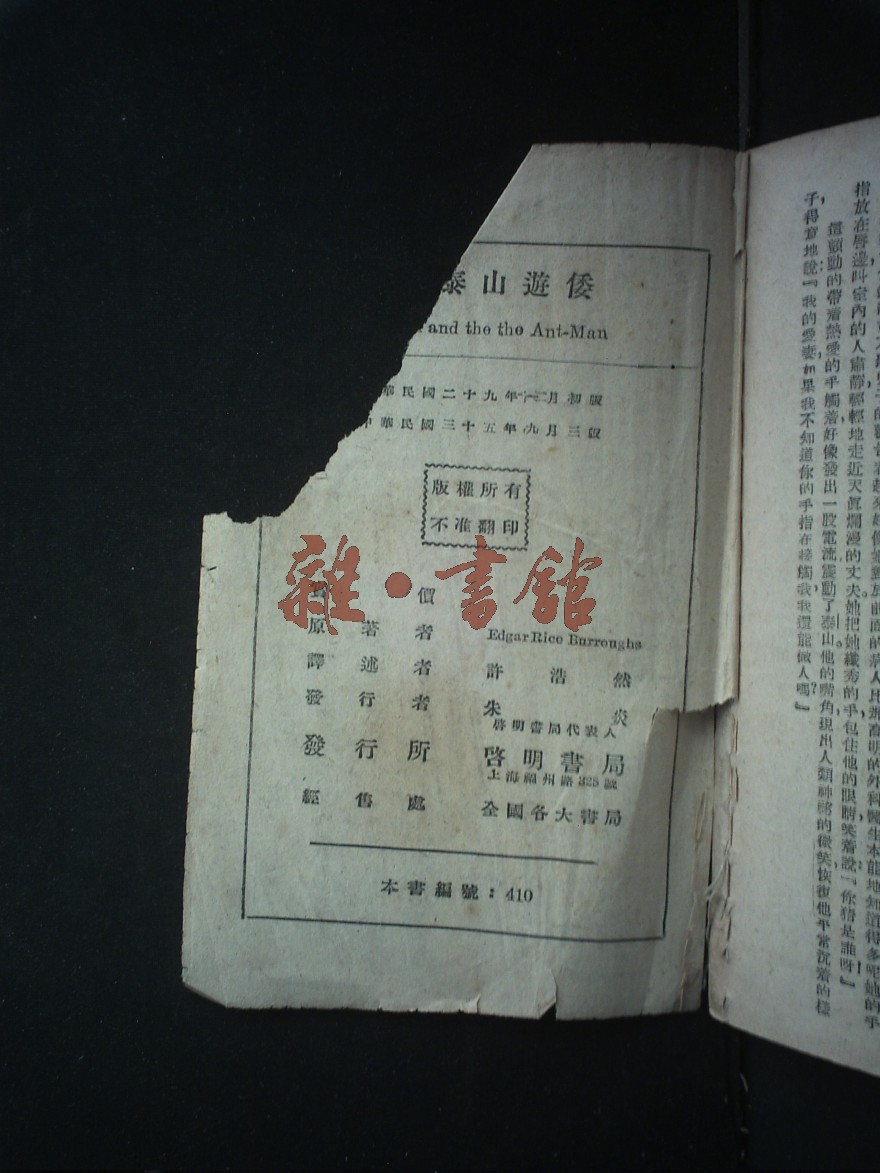 泰山遊倭
and the the Ant-Man
華民國二十九年十二月初版
中華民國三十五年九月三版
版權所有
不准翻印
雜·書館
價
原著者 Edgar Rice Burroughs
譯述者 許浩然
發行者 朱炎
啓明書局代表人
發行所 啓明書局
上海福州路328號
經售處 全國各大書局
本書編號：410
指放在唇邊叫室內的人肅靜輕輕地走近天眞爛漫的丈夫她把她纖秀的手包住他的眼睛笑着說『你猜是誰呀！』
這顫動的帶着熱愛的手觸着好像發出一股電流震動了泰山他的嘴角現出人類神祕的微笑恢復他平常沉着的樣
子得意地說：『我的愛妻，如果我不知道你的手指在接觸我我還能做人嗎？』